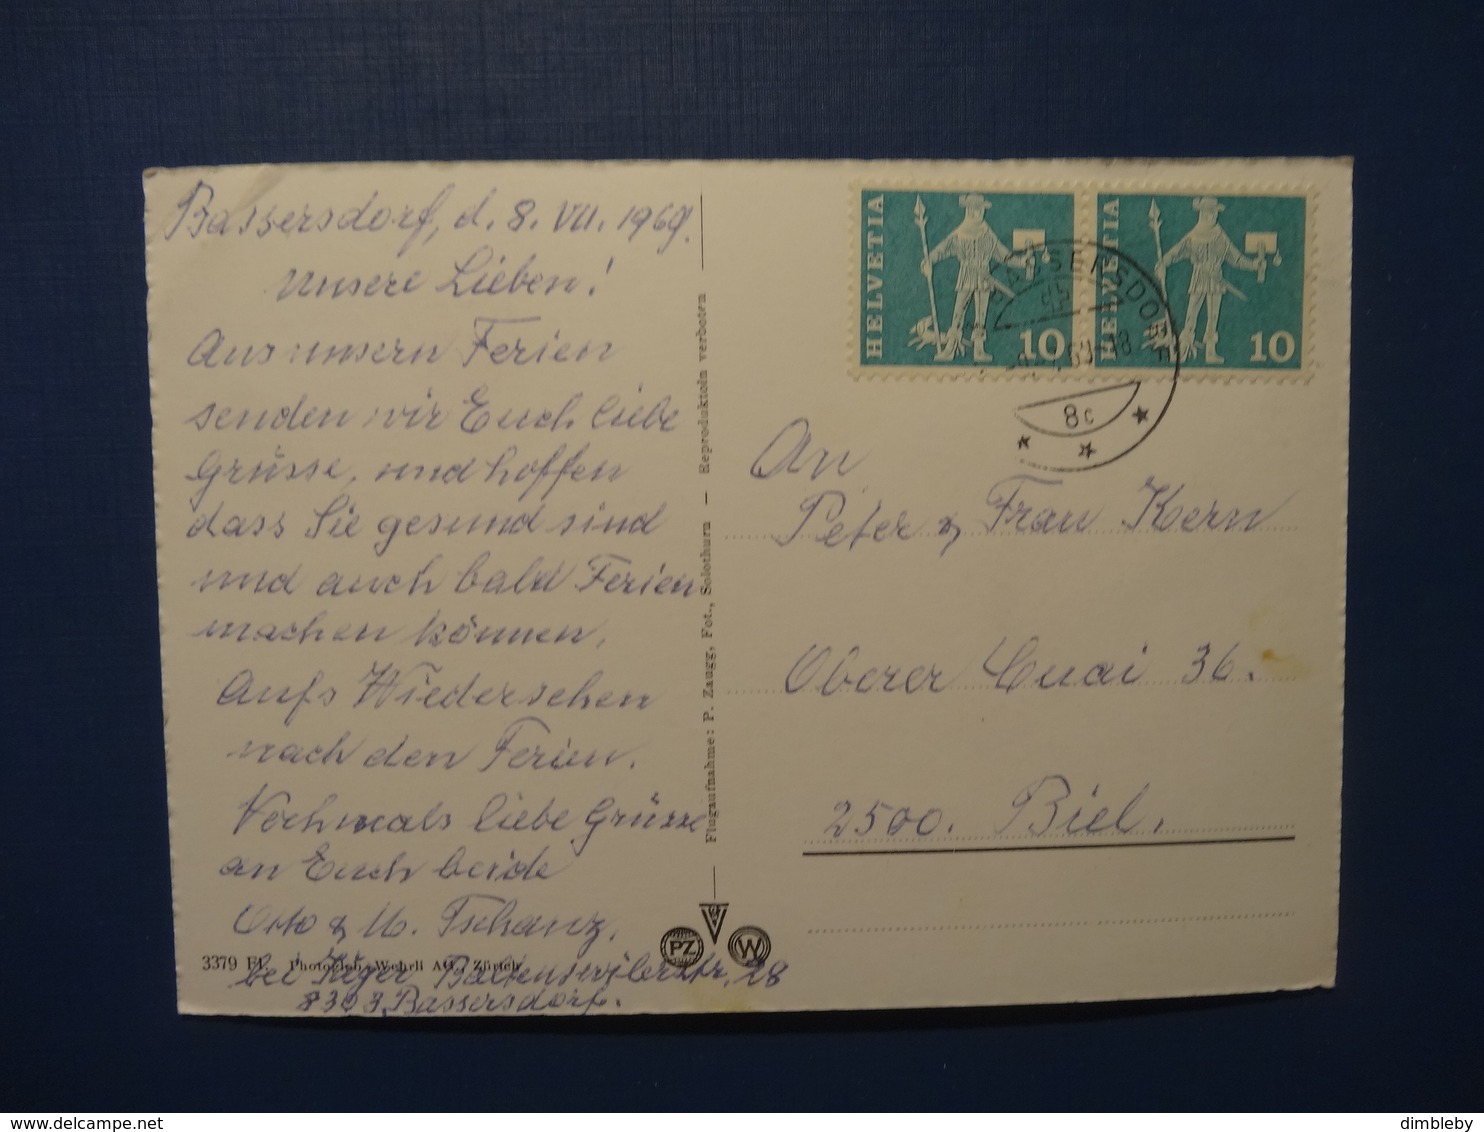 Bassersdorf, d. 8. VII. 1969.
Unsere Lieben!
Aus unsern Ferien
senden wir Euch liebe
Grüsse, und hoffen
dass Sie gesund sind
und auch bald Ferien
machen können.
Aufs Wiedersehen
nach den Ferien.
Nochmals liebe Grüsse
an Euch beide
Otto & M. Tschanz.
bei Jeger Baltenswilerstr. 28
8303 Bassersdorf.
3379 Fl Photoglob-Wehrli AG, Zürich
Flugaufnahme: P. Zaugg, Fot., Solothurn — Reproduktoin verboten
PZ
W
HELVETIA
10
HELVETIA
10
BASSERSDORF
8c
An
Peter & Frau Kern
Oberer Quai 36.
2500. Biel.
delcampe.net
dimbleby